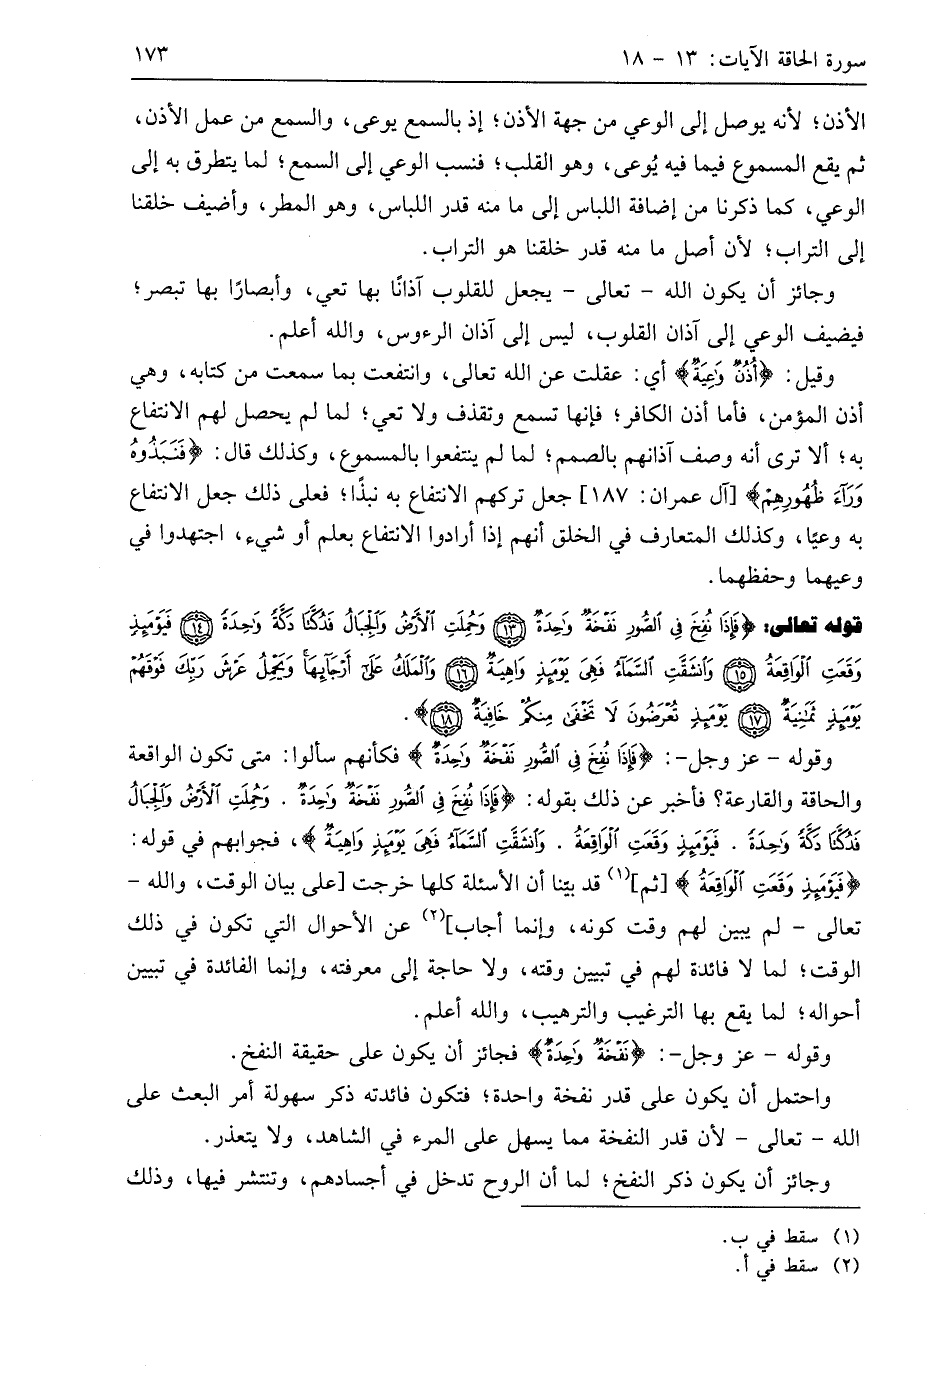 سورة الحاقة الآيات: ١٣ - ١٨ ١٧٣
الأذن؛ لأنه يوصل إلى الوعي من جهة الأذن؛ إذ بالسمع يوعى، والسمع من عمل الأذن،
ثم يقع المسموع فيما فيه يُوعى، وهو القلب؛ فنسب الوعي إلى السمع؛ لما يتطرق به إلى
الوعي، كما ذكرنا من إضافة اللباس إلى ما منه قدر اللباس، وهو المطر، وأضيف خلقنا
إلى التراب؛ لأن أصل ما منه قدر خلقنا هو التراب.
وجائز أن يكون الله - تعالى - يجعل للقلوب آذانًا بها تعي، وأبصارًا بها تبصر؛
فيضيف الوعي إلى آذان القلوب، ليس إلى آذان الرءوس، والله أعلم.
وقيل: ﴿أُذُنٌ وَٰعِيَةٌ﴾ أي: عقلت عن الله تعالى، وانتفعت بما سمعت من كتابه، وهي
أذن المؤمن، فأما أذن الكافر؛ فإنها تسمع وتقذف ولا تعي؛ لما لم يحصل لهم الانتفاع
به؛ ألا ترى أنه وصف آذانهم بالصمم؛ لما لم ينتفعوا بالمسموع، وكذلك قال: ﴿فَنَبَذُوهُ
وَرَآءَ ظُهُورِهِمْ﴾ [آل عمران: ١٨٧] جعل تركهم الانتفاع به نبذًا؛ فعلى ذلك جعل الانتفاع
به وعيًا، وكذلك المتعارف في الخلق أنهم إذا أرادوا الانتفاع بعلم أو شيء، اجتهدوا في
وعيهما وحفظهما.
قوله تعالى: ﴿فَإِذَا نُفِخَ فِي ٱلصُّورِ نَفْخَةٌ وَٰحِدَةٌ ١٣ وَحُمِلَتِ ٱلْأَرْضُ وَٱلْجِبَالُ فَدُكَّتَا دَكَّةً وَٰحِدَةً ١٤ فَيَوْمَئِذٍ
وَقَعَتِ ٱلْوَاقِعَةُ ١٥ وَٱنشَقَّتِ ٱلسَّمَآءُ فَهِيَ يَوْمَئِذٍ وَاهِيَةٌ ١٦ وَٱلْمَلَكُ عَلَىٰٓ أَرْجَآئِهَا وَيَحْمِلُ عَرْشَ رَبِّكَ فَوْقَهُمْ
يَوْمَئِذٍ ثَمَٰنِيَةٌ ١٧ يَوْمَئِذٍ تُعْرَضُونَ لَا تَخْفَىٰ مِنكُمْ خَافِيَةٌ ١٨﴾.
وقوله - عز وجل-: ﴿فَإِذَا نُفِخَ فِي ٱلصُّورِ نَفْخَةٌ وَٰحِدَةٌ﴾ فكأنهم سألوا: متى تكون الواقعة
والحاقة والقارعة؟ فأخبر عن ذلك بقوله: ﴿فَإِذَا نُفِخَ فِي ٱلصُّورِ نَفْخَةٌ وَٰحِدَةٌ . وَحُمِلَتِ ٱلْأَرْضُ وَٱلْجِبَالُ
فَدُكَّتَا دَكَّةً وَٰحِدَةً . فَيَوْمَئِذٍ وَقَعَتِ ٱلْوَاقِعَةُ . وَٱنشَقَّتِ ٱلسَّمَآءُ فَهِيَ يَوْمَئِذٍ وَاهِيَةٌ﴾، فجوابهم في قوله:
﴿فَيَوْمَئِذٍ وَقَعَتِ ٱلْوَاقِعَةُ﴾ [ثم](١) قد بيّنا أن الأسئلة كلها خرجت [على بيان الوقت، والله -
تعالى - لم يبين لهم وقت كونه، وإنما أجاب](٢) عن الأحوال التي تكون في ذلك
الوقت؛ لما لا فائدة لهم في تبيين وقته، ولا حاجة إلى معرفته، وإنما الفائدة في تبيين
أحواله؛ لما يقع بها الترغيب والترهيب، والله أعلم.
وقوله - عز وجل-: ﴿نَفْخَةٌ وَٰحِدَةٌ﴾ فجائز أن يكون على حقيقة النفخ.
واحتمل أن يكون على قدر نفخة واحدة؛ فتكون فائدته ذكر سهولة أمر البعث على
الله - تعالى - لأن قدر النفخة مما يسهل على المرء في الشاهد، ولا يتعذر.
وجائز أن يكون ذكر النفخ؛ لما أن الروح تدخل في أجسادهم، وتنتشر فيها، وذلك
(١) سقط في ب.
(٢) سقط في أ.